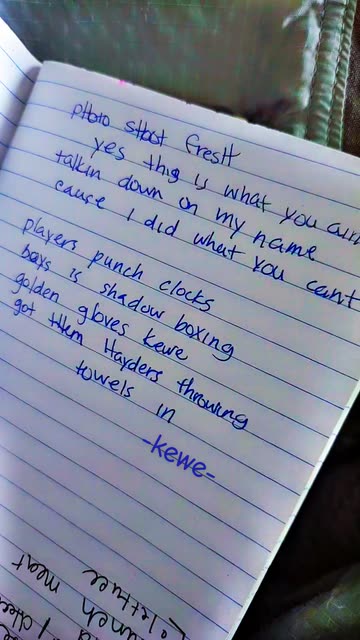 photo shoot fresh
yes this is what you ain
talkin down on my name
cause I did what you cant
players punch clocks
bars is shadow boxing
golden gloves kewe
got them Hayders throwing
towels in
-kewe-
lettuce
lunch meat